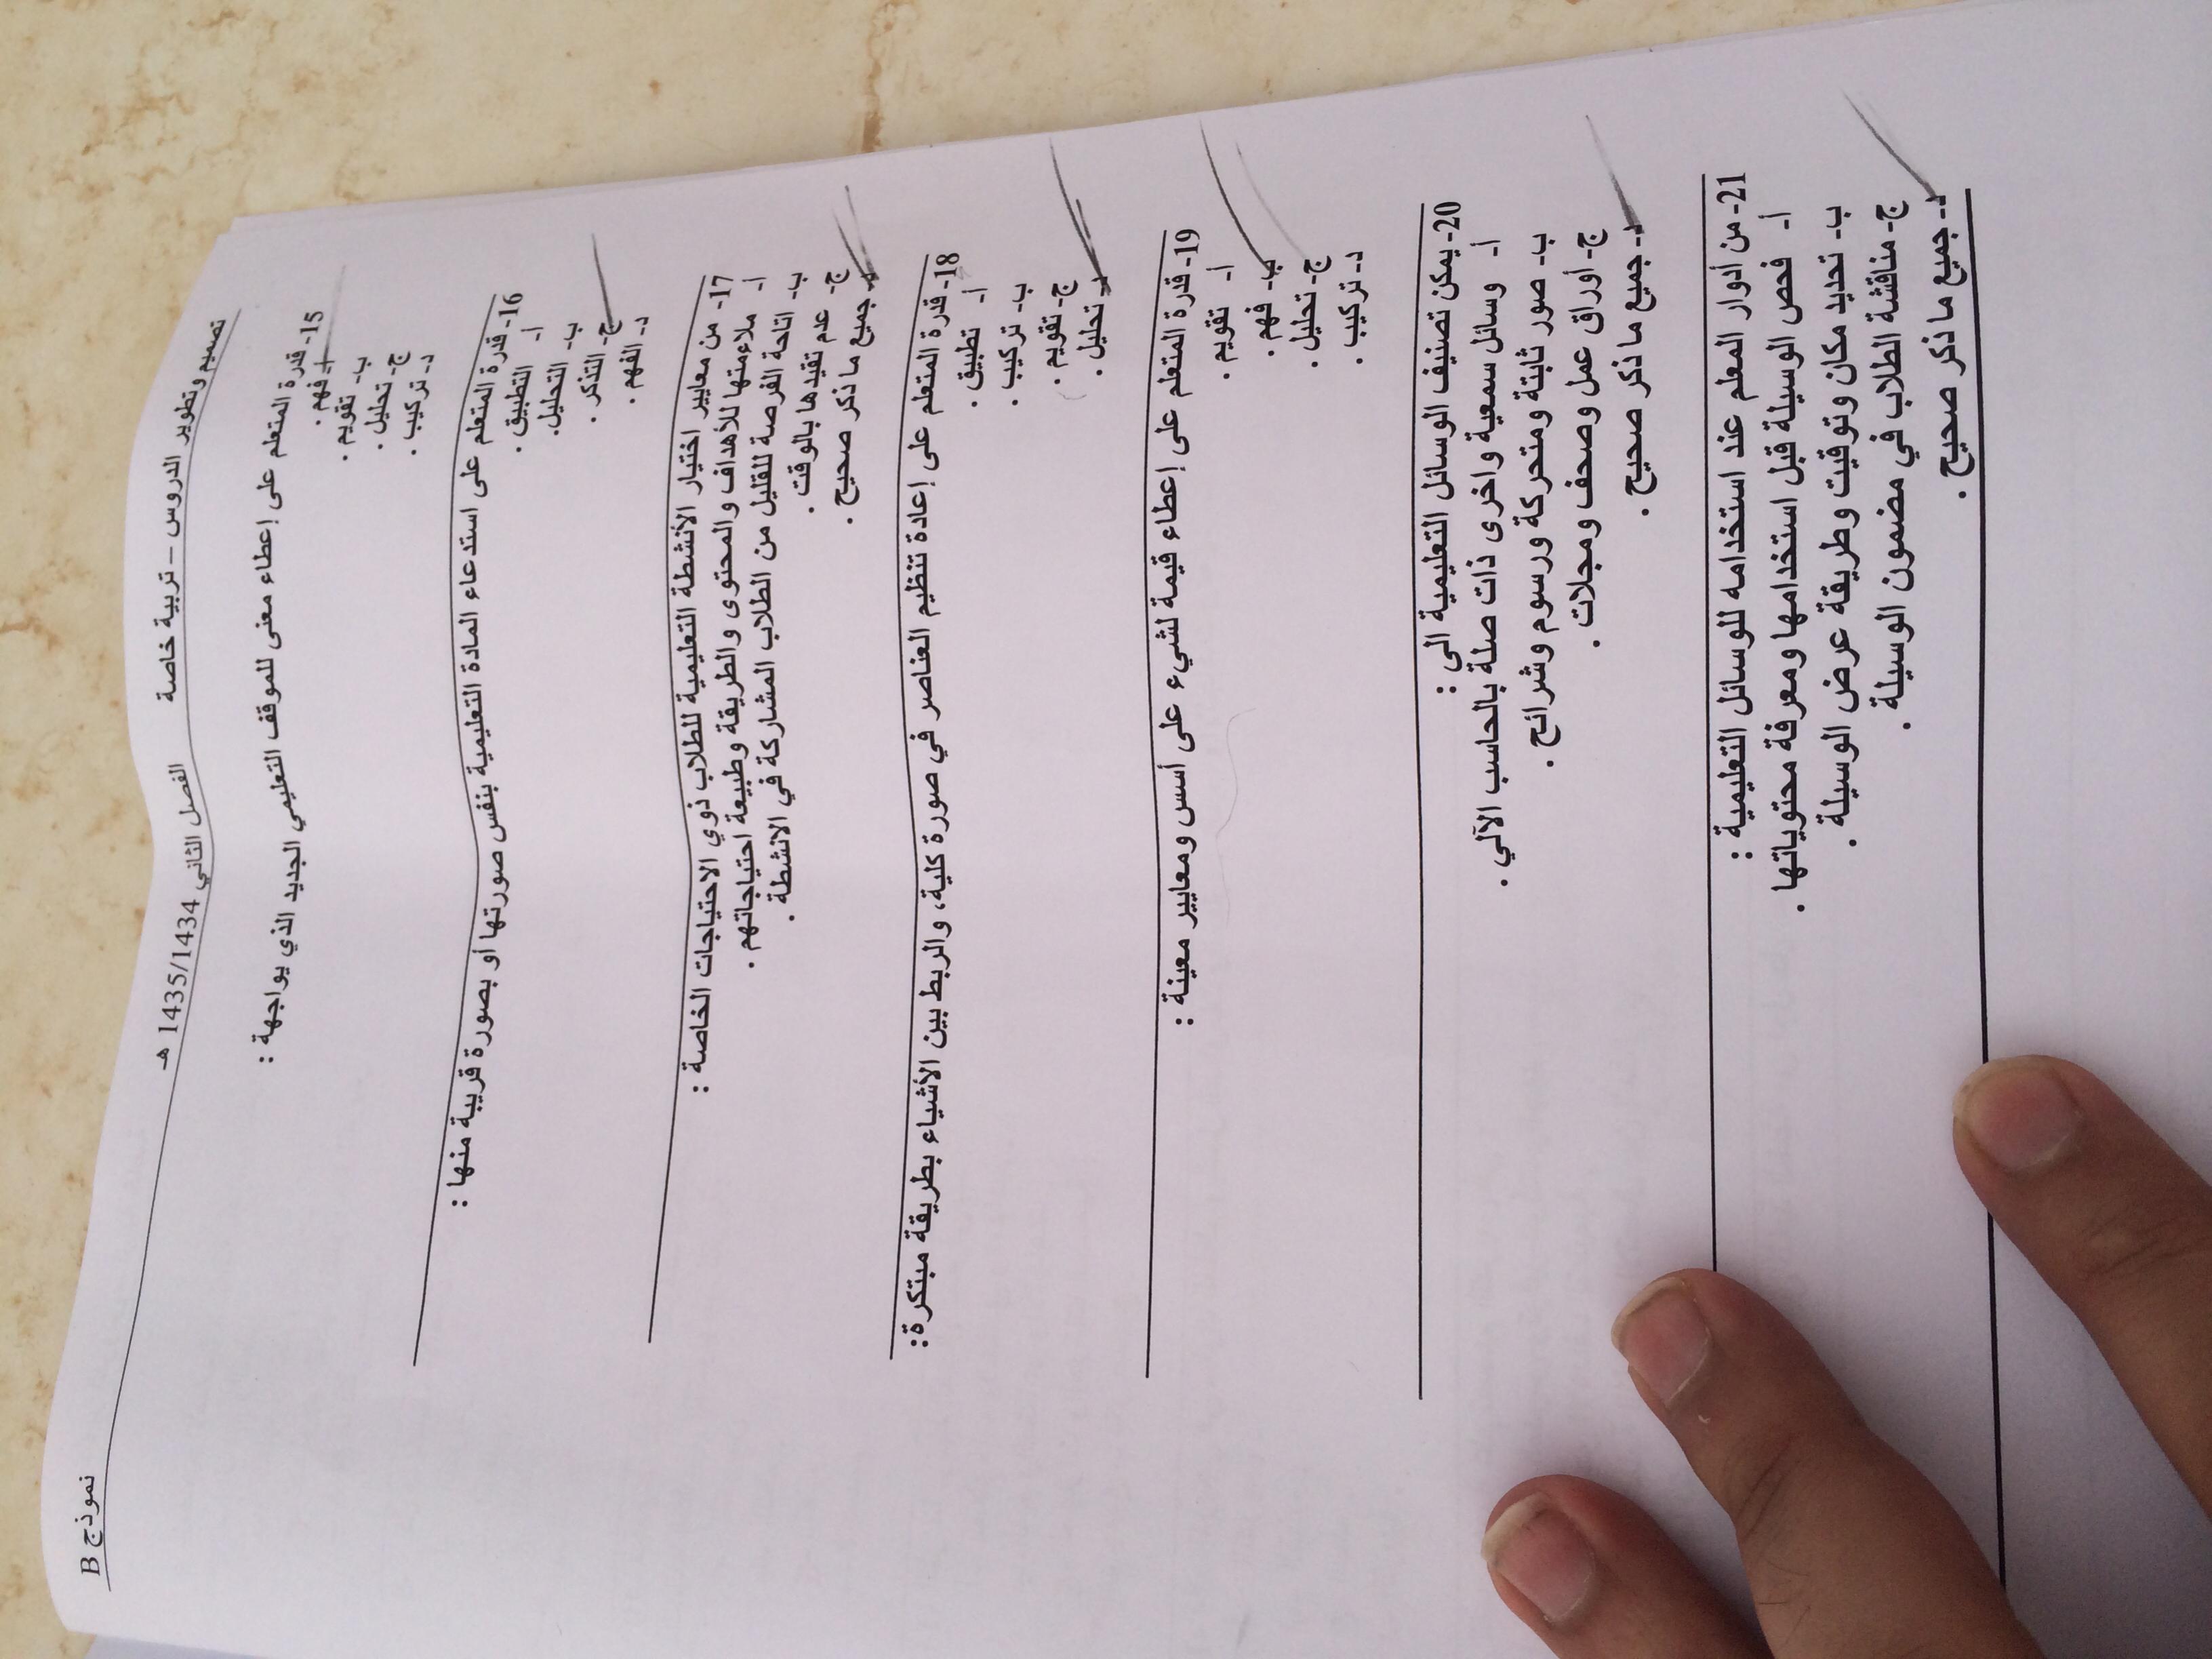 تصميم وتطوير الدروس – تربية خاصة الفصل الثاني 1435/1434 هـ نموذج B
15- قدرة المتعلم على إعطاء معنى للموقف التعليمي الجديد الذي يواجهة :
أ- فهم .
ب- تقويم .
ج- تحليل .
د- تركيب .
16- قدرة المتعلم على استدعاء المادة التعليمية بنفس صورتها أو بصورة قريبة منها :
أ- التطبيق .
ب- التحليل.
ج- التذكر .
د- الفهم .
17- من معايير اختيار الأنشطة التعليمية للطلاب ذوي الاحتياجات الخاصة :
أ- ملاءمتها للأهداف والمحتوى والطريقة وطبيعة احتياجاتهم .
ب- اتاحة الفرصة للقليل من الطلاب المشاركة في الانشطة .
ج- عدم تقيدها بالوقت .
د- جميع ما ذكر صحيح .
18- قدرة المتعلم على إعادة تنظيم العناصر في صورة كلية، والربط بين الأشياء بطريقة مبتكرة:
أ- تطبيق .
ب- تركيب .
ج- تقويم .
د- تحليل .
19- قدرة المتعلم على إعطاء قيمة لشيء على أسس ومعايير معينة :
أ- تقويم .
ب- فهم .
ج- تحليل .
د- تركيب .
20- يمكن تصنيف الوسائل التعليمية الى :
أ- وسائل سمعية واخرى ذات صلة بالحاسب الآلي .
ب- صور ثابتة ومتحركة ورسوم وشرائح .
ج- أوراق عمل وصحف ومجلات .
د- جميع ما ذكر صحيح .
21- من أدوار المعلم عند استخدامه للوسائل التعليمية :
أ- فحص الوسيلة قبل استخدامها ومعرفة محتوياتها .
ب- تحديد مكان وتوقيت وطريقة عرض الوسيلة .
ج- مناقشة الطلاب في مضمون الوسيلة .
د- جميع ما ذكر صحيح .